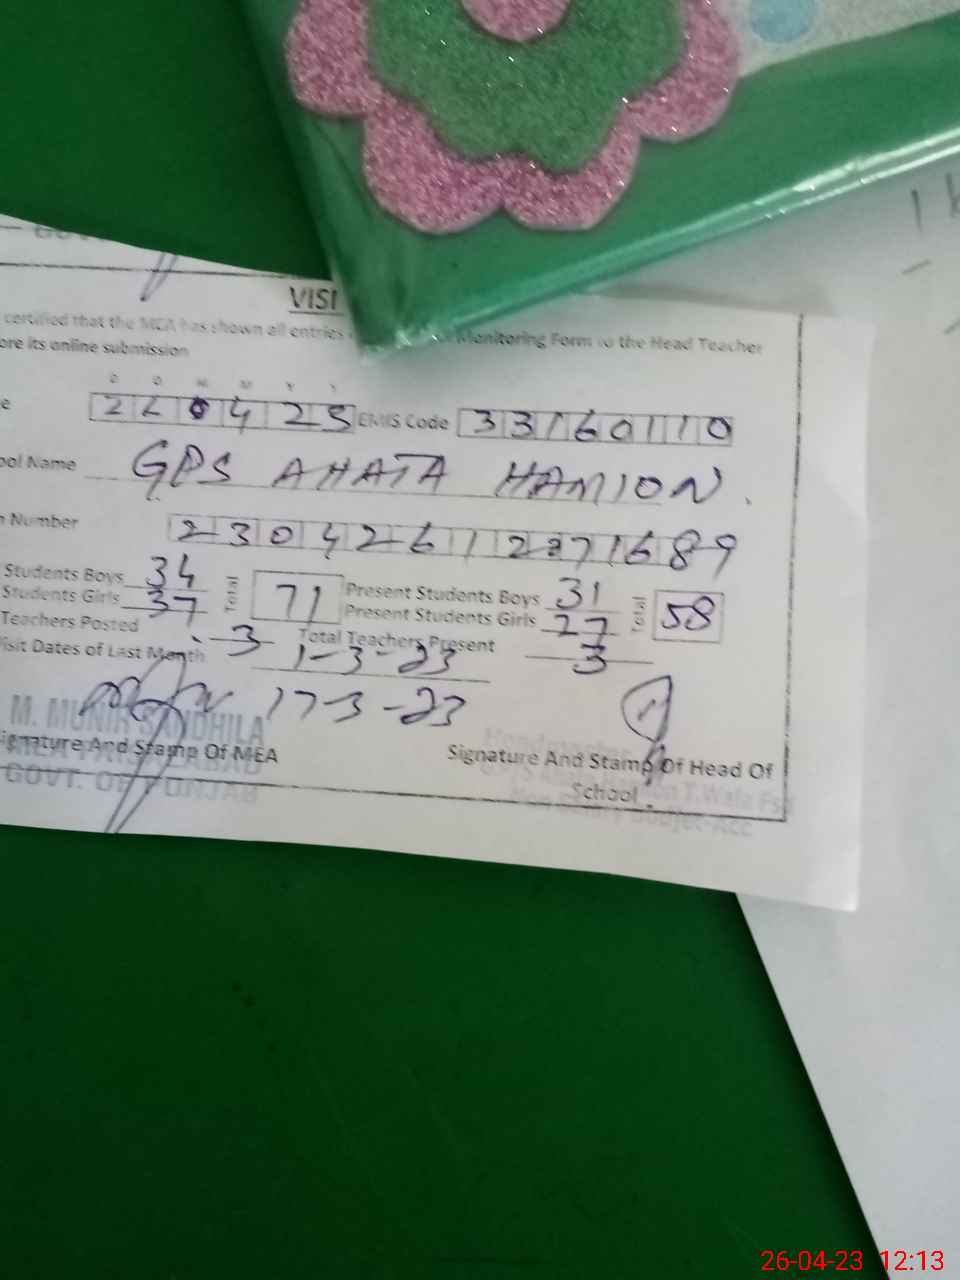 VISI
certified that the MEA has shown all entries Monitoring Form to the Head Teacher
ore its online submission
D D M M Y Y
e 260423 EMIS Code 33160110
ool Name GPS AHATA HAMION.
n Number 23042612271689
Students Boys 34 Total 71 Present Students Boys 31 Total 58
Students Girls 37 Present Students Girls 27
Teachers Posted 3 Total Teachers Present 3
isit Dates of Last Month 1-3-23
17-3-23
M. MUNIR SANDHILA
MEA FAISALABAD
GOVT. OF PUNJAB
ignature And Stamp Of MEA
Signature And Stamp Of Head Of
School
26-04-23 12:13